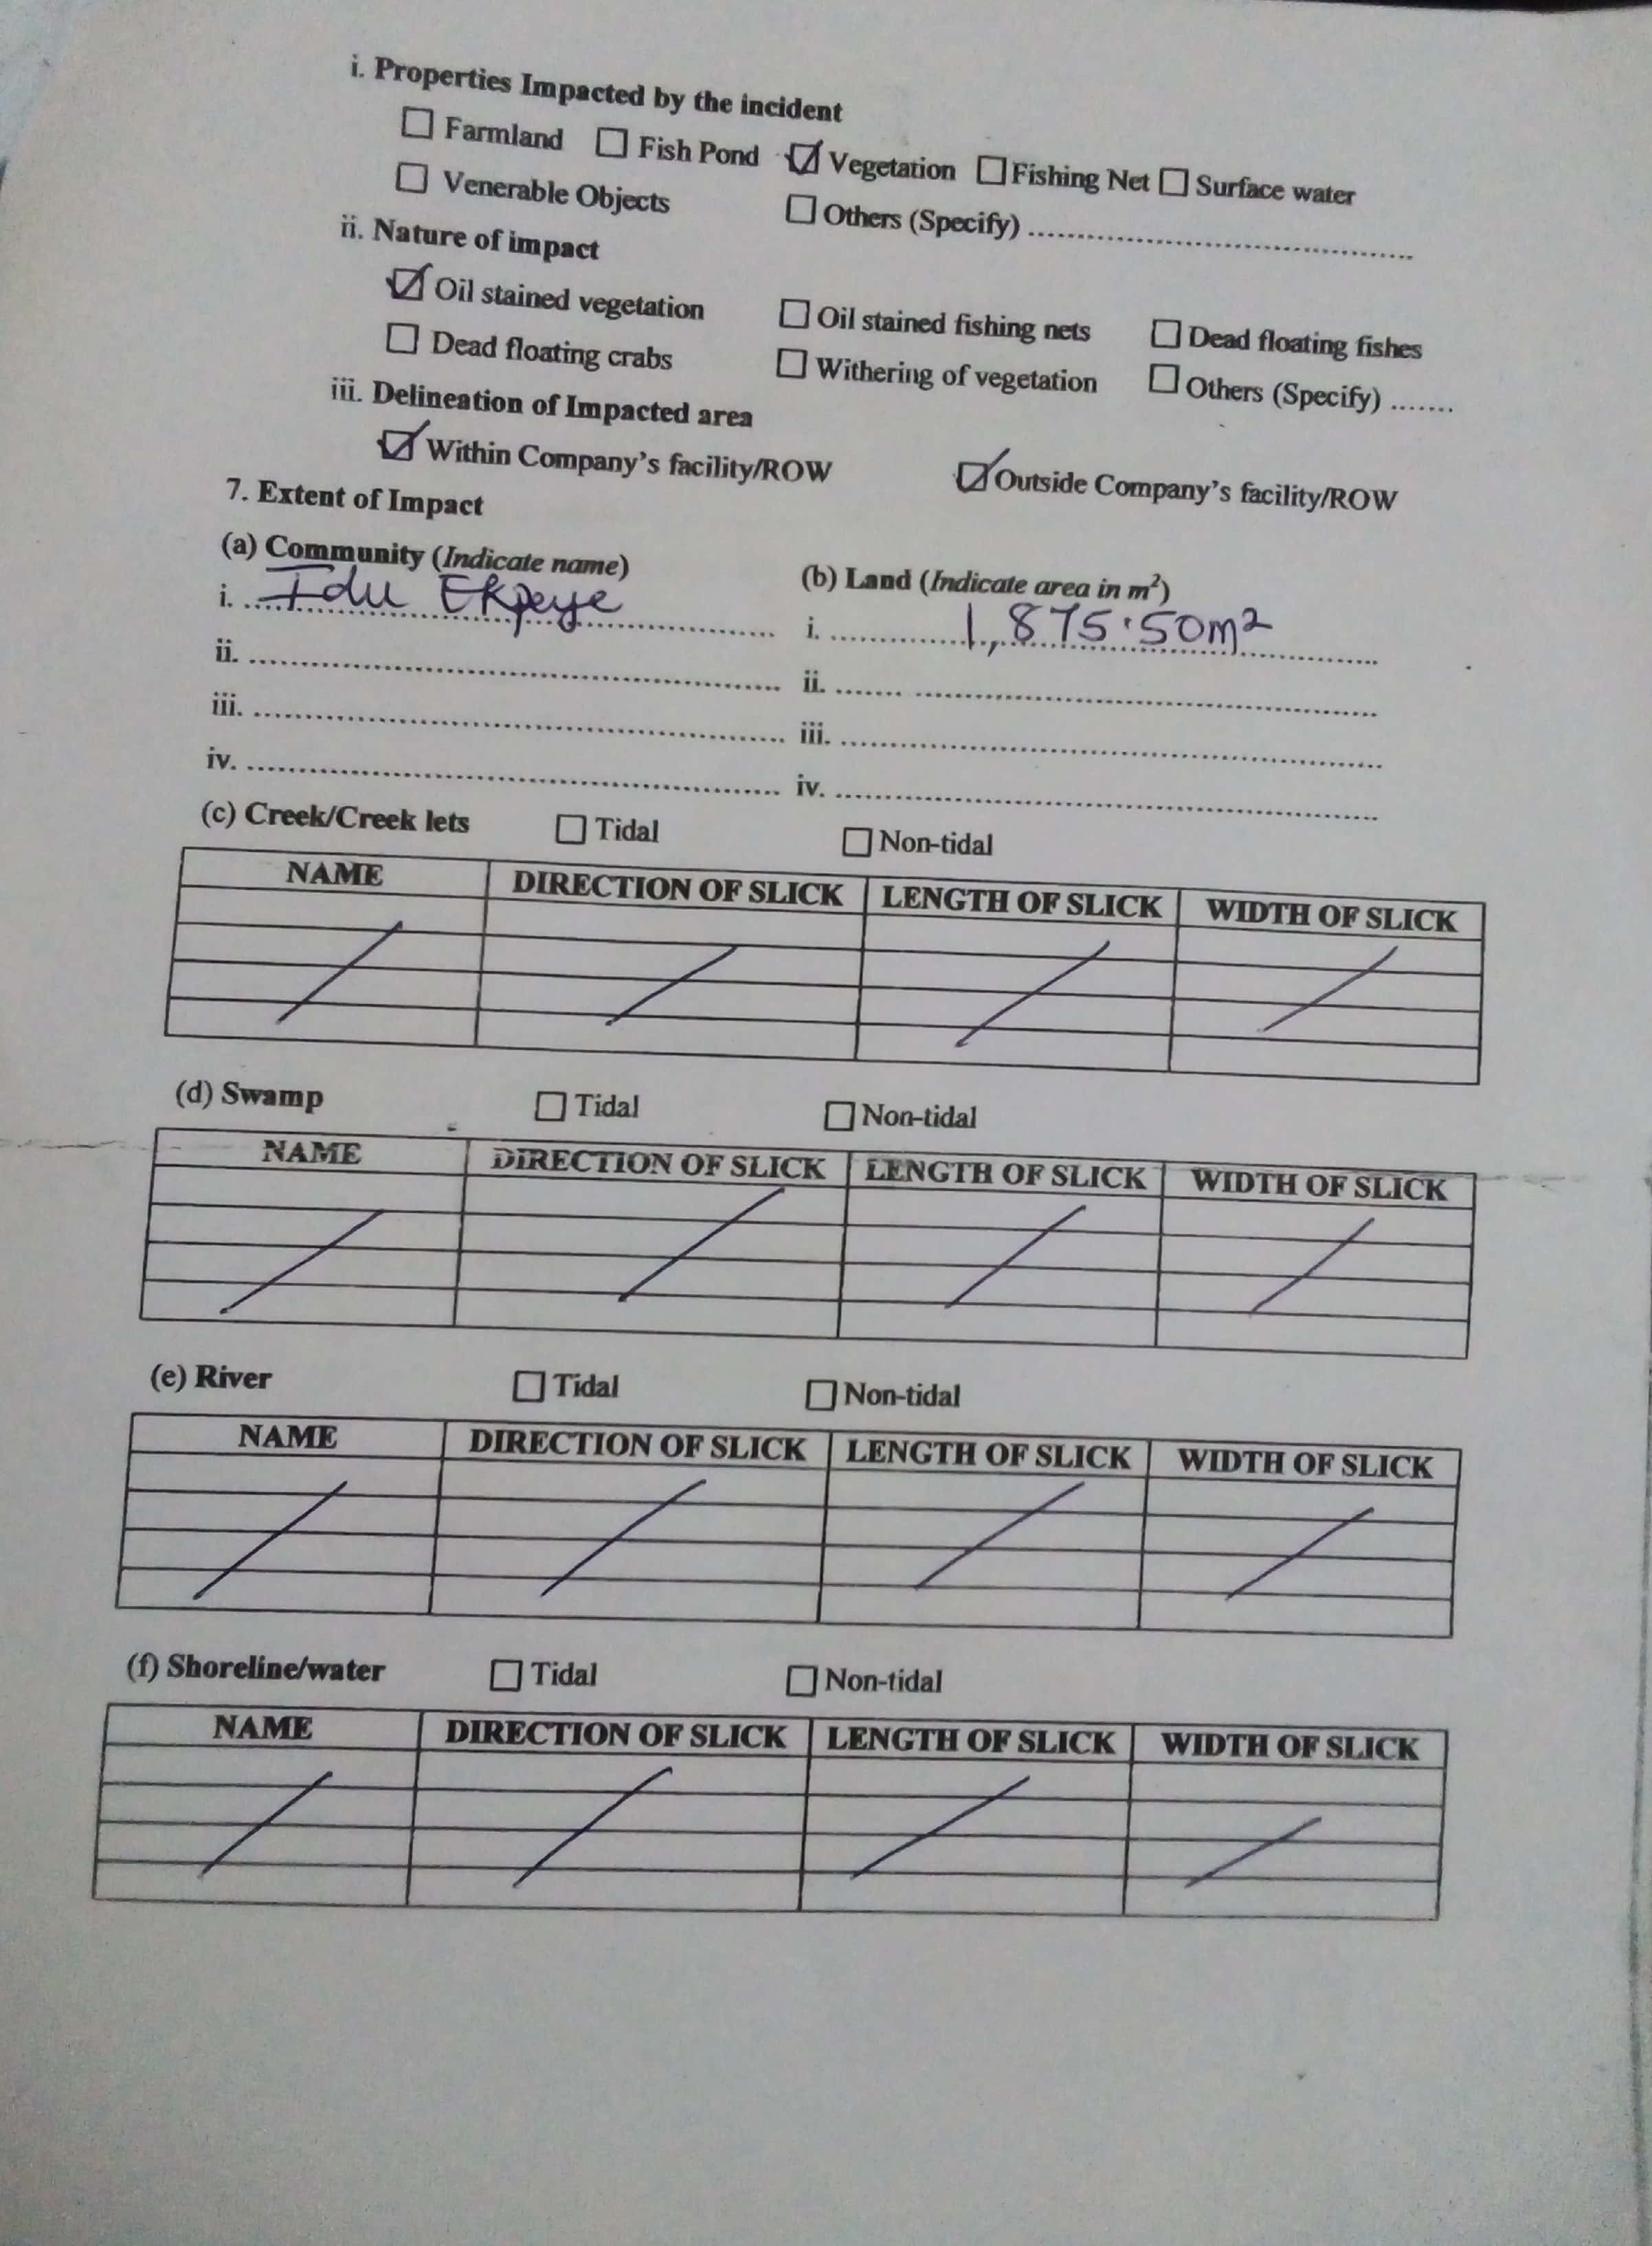 i. Properties Impacted by the incident
☐ Farmland ☐ Fish Pond ☑ Vegetation ☐ Fishing Net ☐ Surface water
☐ Venerable Objects ☐ Others (Specify) ..........
ii. Nature of impact
☑ Oil stained vegetation ☐ Oil stained fishing nets ☐ Dead floating fishes
☐ Dead floating crabs ☐ Withering of vegetation ☐ Others (Specify) .......
iii. Delineation of Impacted area
☑ Within Company's facility/ROW ☑ Outside Company's facility/ROW
7. Extent of Impact
(a) Community (Indicate name) (b) Land (Indicate area in m²)
i. Idu Ekpeye i. 1,875.50m²
ii. .......... ii. ..........
iii. .......... iii. ..........
iv. .......... iv. ..........
(c) Creek/Creek lets ☐ Tidal ☐ Non-tidal
NAME DIRECTION OF SLICK LENGTH OF SLICK WIDTH OF SLICK
/ / / /
(d) Swamp ☐ Tidal ☐ Non-tidal
NAME DIRECTION OF SLICK LENGTH OF SLICK WIDTH OF SLICK
/ / / /
(e) River ☐ Tidal ☐ Non-tidal
NAME DIRECTION OF SLICK LENGTH OF SLICK WIDTH OF SLICK
/ / / /
(f) Shoreline/water ☐ Tidal ☐ Non-tidal
NAME DIRECTION OF SLICK LENGTH OF SLICK WIDTH OF SLICK
/ / / /